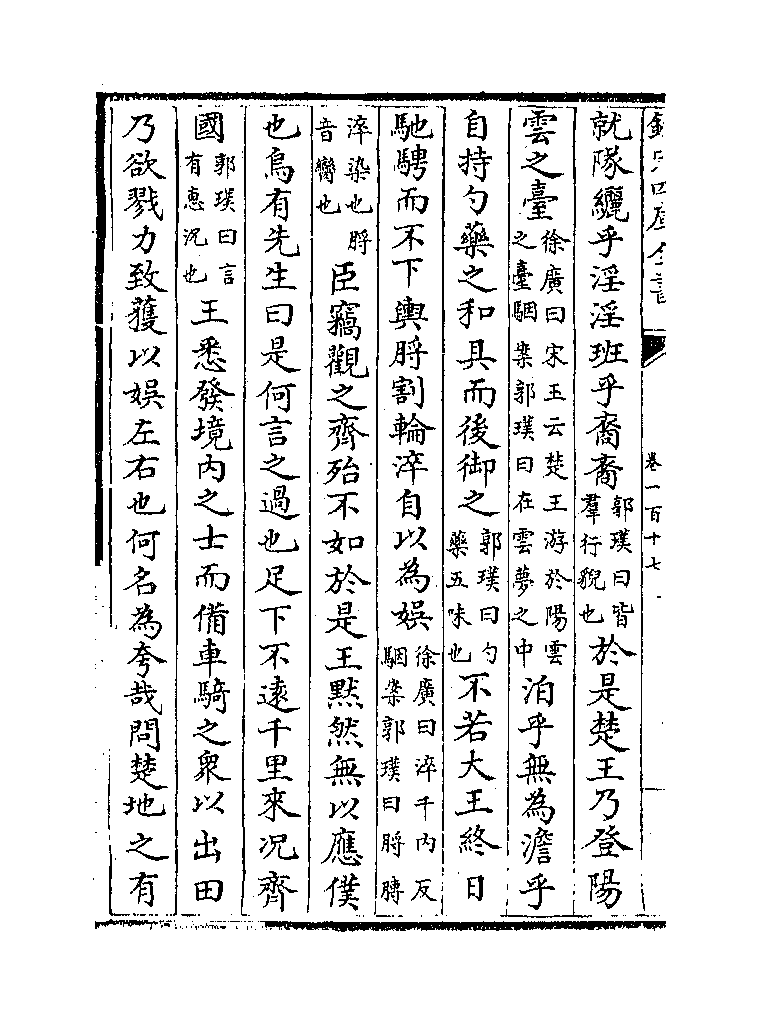 欽定四庫全書 卷一百十七
就隊纚乎淫淫班乎裔裔郭璞曰皆羣行貎也於是楚王乃登陽
雲之臺徐廣曰宋王云楚王游於陽雲之臺駰案郭璞曰在雲夢之中泊乎無為澹乎
自持勺藥之和具而後御之郭璞曰勺藥五味也不若大王終日
馳騁而不下輿脟割輪淬自以為娛徐廣曰淬千內反駰案郭璞曰脟膊
淬染也脟音臠也臣竊觀之齊殆不如於是王默然無以應僕
也烏有先生曰是何言之過也足下不遠千里來况齊
國郭璞曰言有惠况也王悉發境內之士而備車騎之衆以出田
乃欲戮力致獲以娛左右也何名為夸哉問楚地之有